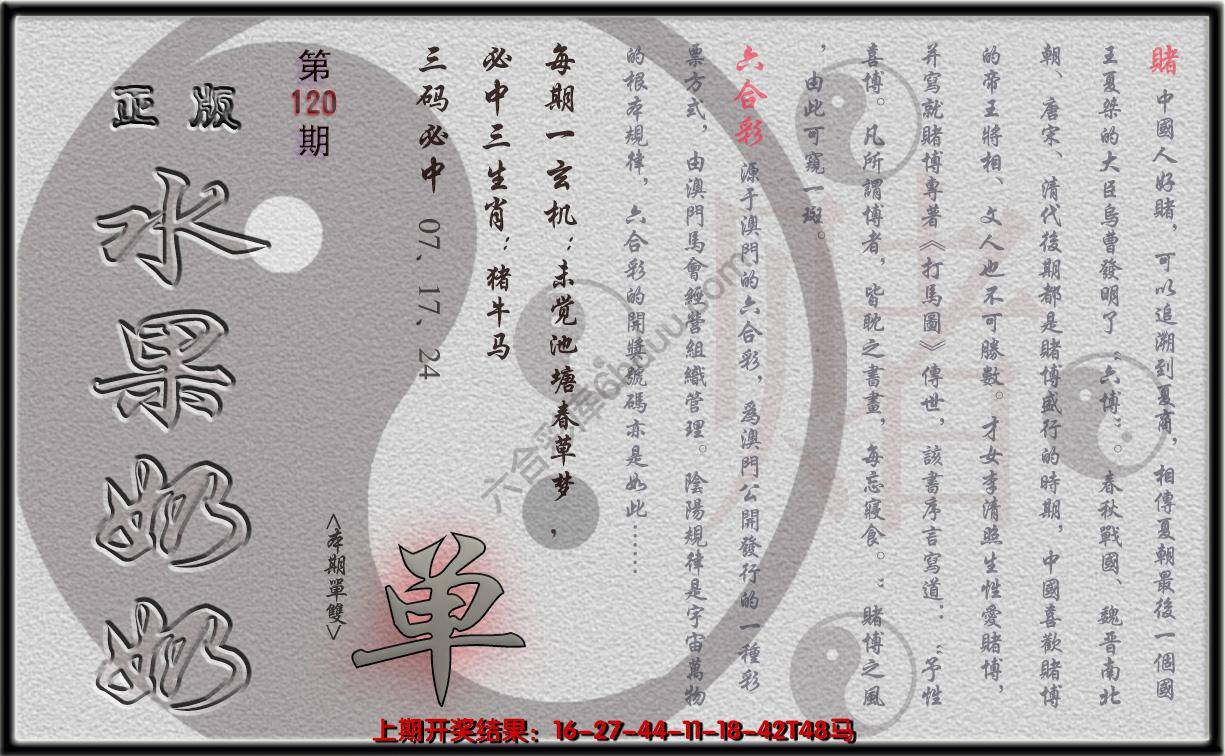 賭 中國人好賭，可以追溯到夏商，相傳夏朝最後一個國
王夏桀的大臣烏曹發明了“六博”。春秋戰國、魏晋南北
朝、唐宋、清代後期都是賭博盛行的時期，中國喜歡賭博
的帝王將相、文人也不可勝數。才女李清照生性愛賭博，
并寫就賭博專著《打馬圖》傳世，該書序言寫道：“予性
喜博。凡所謂博者，皆耽之書畫，每忘寢食。”賭博之風
，由此可窺一斑。
六合彩 源于澳門的六合彩，爲澳門公開發行的一種彩
票方式，由澳門馬會經營組織管理。陰陽規律是宇宙萬物
的根本規律，六合彩的開獎號碼亦是如此……
每期一玄机：未觉池塘春草梦，
必中三生肖：猪牛马
三码必中 07.17.24
第
120
期
正版
水果奶奶
<本期單雙>
单
上期开奖结果：16-27-44-11-18-42T48马